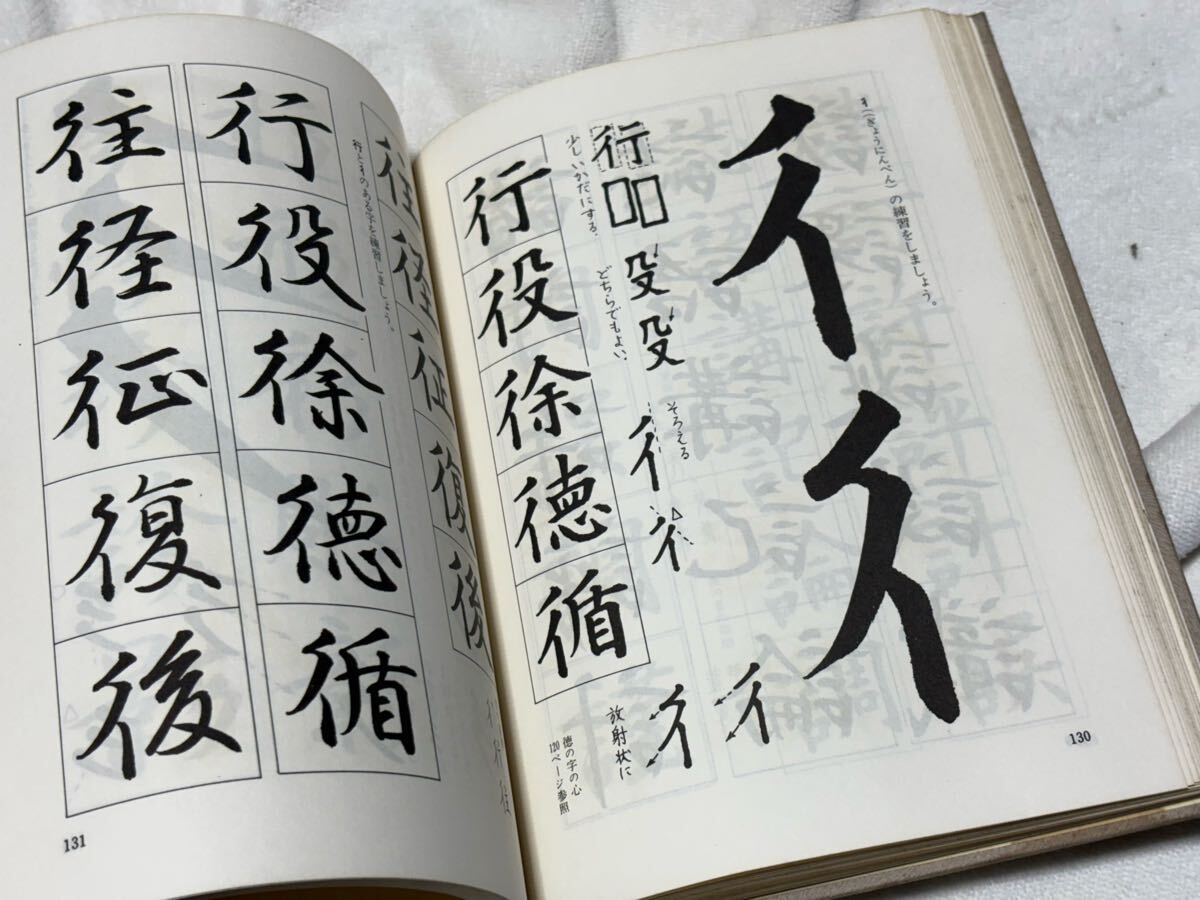 彳(ぎょうにんべん)の練習をしましょう。
彳
彳
行
殳
殳
彳
彳
彳
彳
少しいかだにする。
どちらでもよい。
そろえる
放射状に
行
役
徐
徳
循
徳の字の心
120ページ参照
130
往
径
征
復
後
行と彳のある字を練習しましょう。
行
役
徐
徳
循
往
径
征
復
後
131